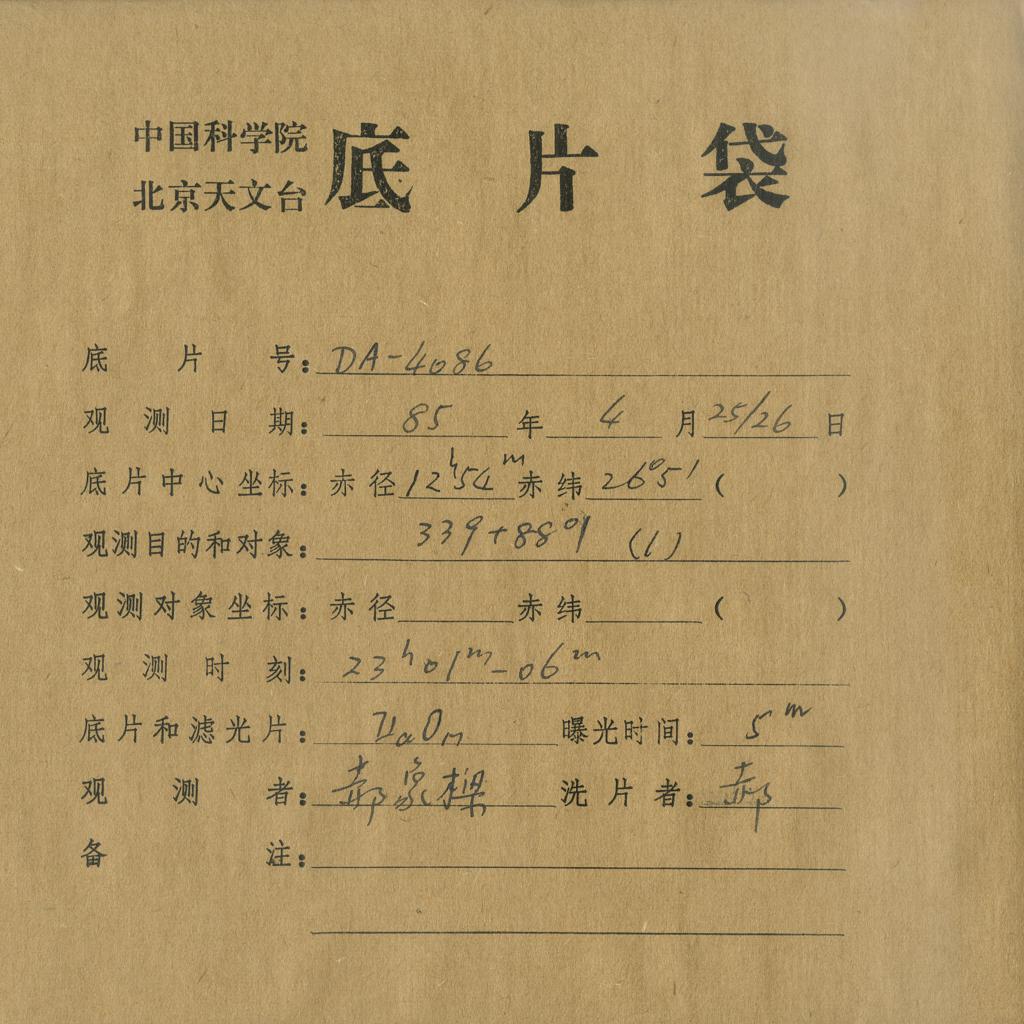 中国科学院
北京天文台
底片袋
底片号：DA-4086
观测日期：85年4月25/26日
底片中心坐标：赤径12ʰ54ᵐ赤纬26°51′（ ）
观测目的和对象：339+88°1 (1)
观测对象坐标：赤径 赤纬 （ ）
观测时刻：23ʰ01ᵐ-06ᵐ
底片和滤光片：ⅡaO 曝光时间：5ᵐ
观测者：郝象樑 洗片者：郝
备注：